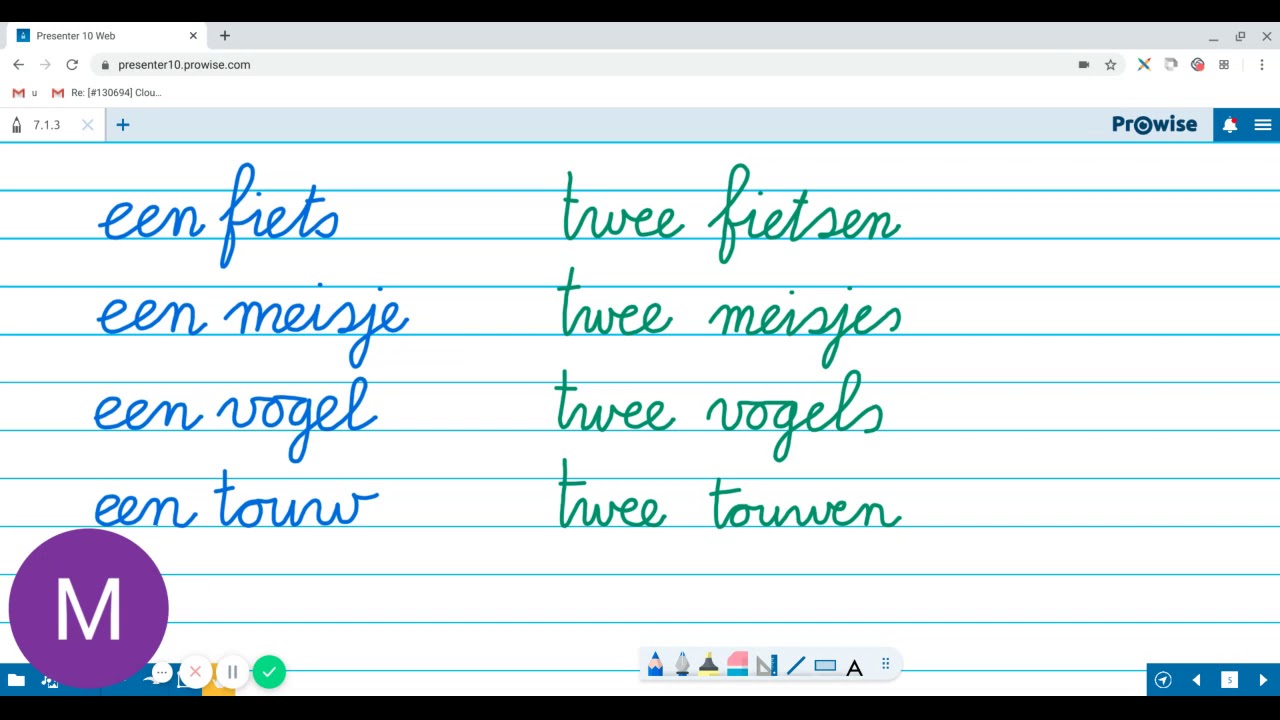 Presenter 10 Web
presenter10.prowise.com
u Re: [#130694] Clou...
7.1.3 Prowise
een fiets twee fietsen
een meisje twee meisjes
een vogel twee vogels
een touw twee touwen
M
A
5